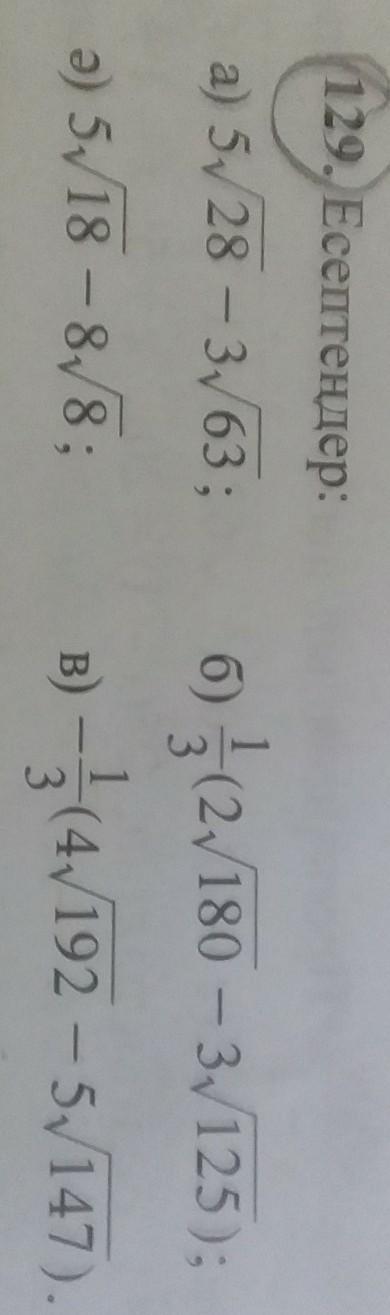 129. Есептеңдер:
а) 5√28 − 3√63; б) 1/3(2√180 − 3√125);
ә) 5√18 − 8√8; в) −1/3(4√192 − 5√147).